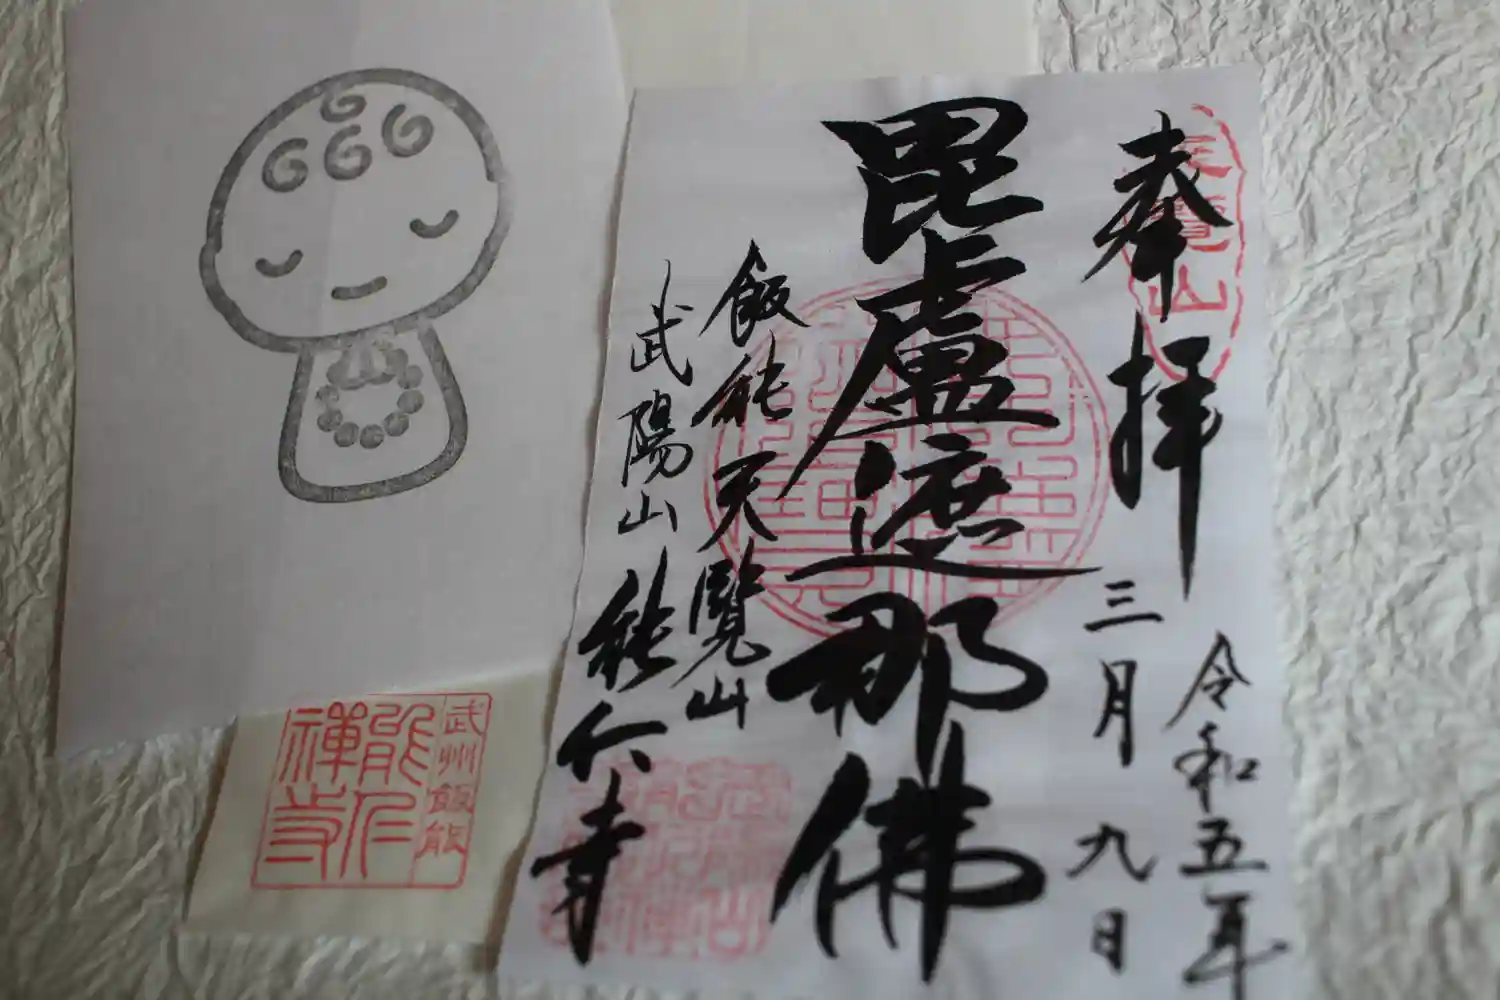 奉拝
天覧山
令和五年
三月九日
毘盧遮那佛
飯能天覧山
武陽山
能仁寺
武州飯能
能仁
禅寺